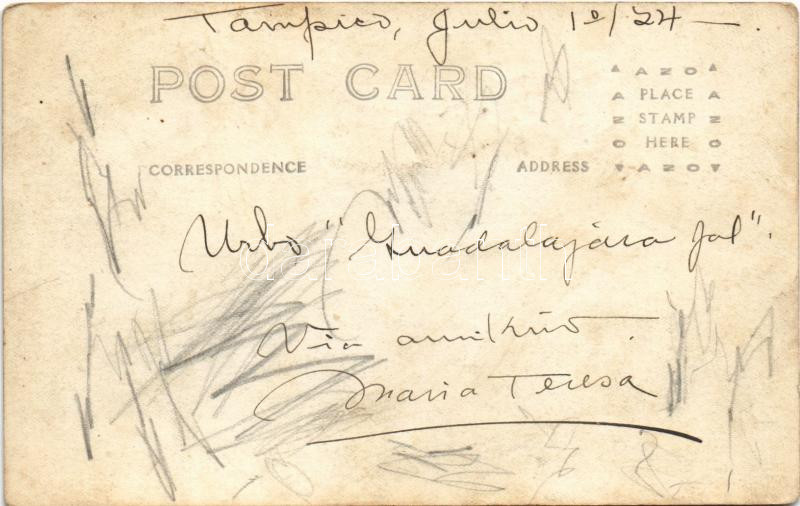 Tampico, Julio 1º/24 —.
POST CARD
AZO
PLACE
STAMP
HERE
AZO
CORRESPONDENCE
ADDRESS
Urbo "Guadalajara Jal".
Via amikino.
Maria Teresa
darabanth